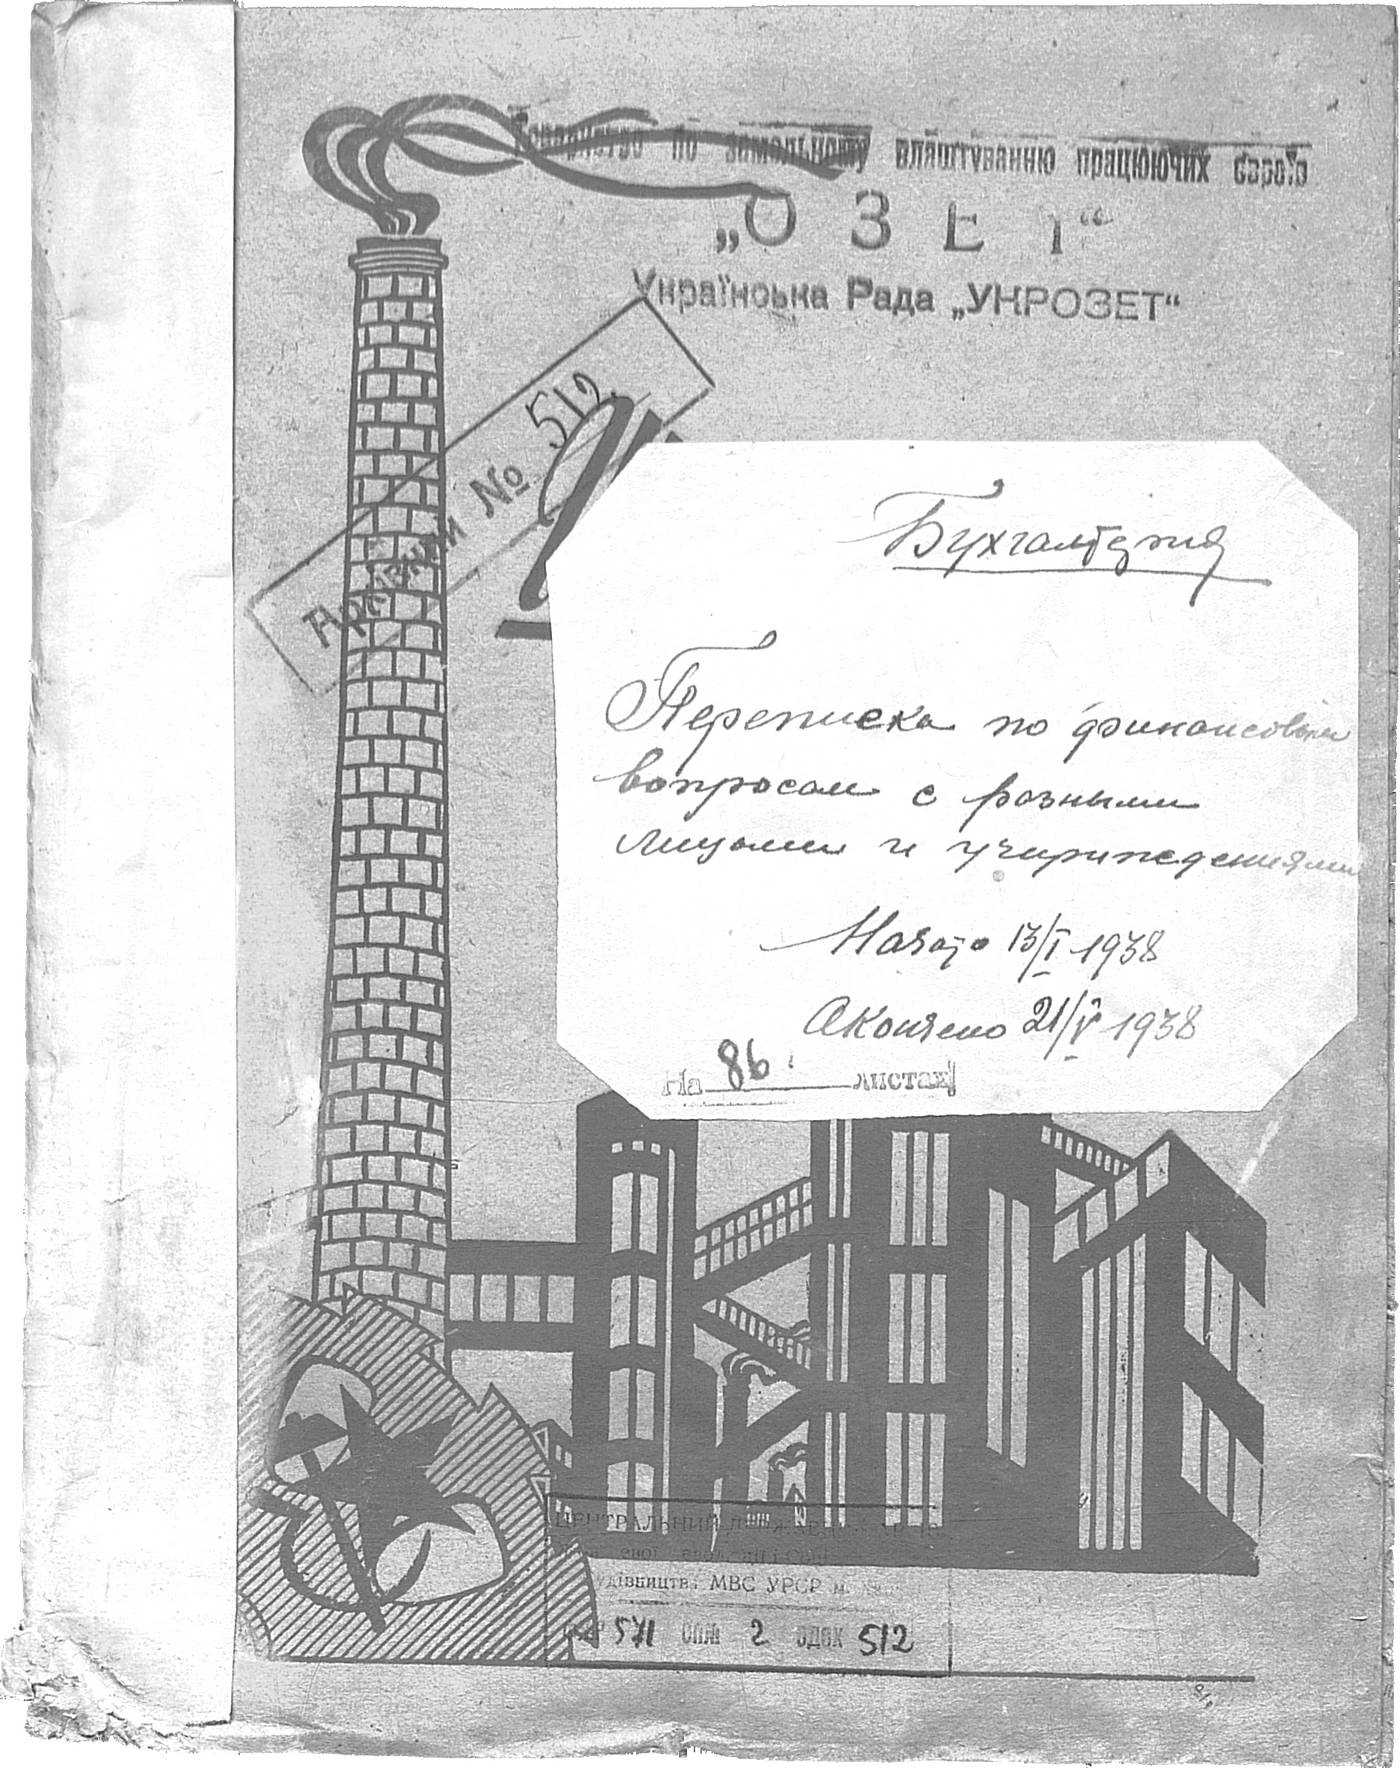 Товариство по земельному влаштуванню працюючих євреїв
„ОЗЕТ“
Українська Рада „УКРОЗЕТ“
Архівний № 512
Бухгалтерия
Переписка по финансовым
вопросам с разными
лицами и учреждениями
Начато 13/I 1938
Окончено 21/V 1938
На 86 листах
ЦЕНТРАЛЬНИЙ
будівництва МВС УРСР м.
571 опис 2 одзх 512